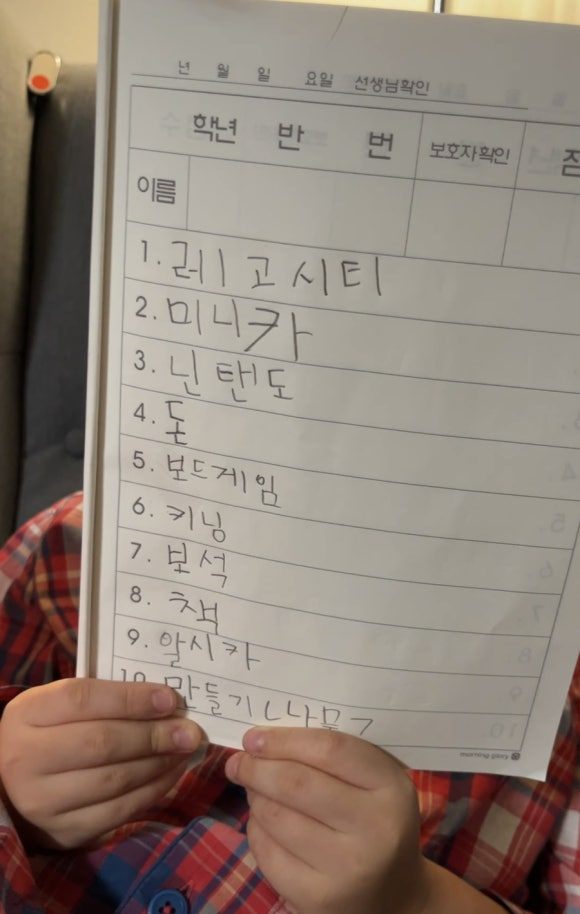 년 월 일 요일 선생님확인
학년 반 번 보호자확인
이름
1. 레고시티
2. 미니카
3. 닌탠도
4. 돈
5. 보드게임
6. 키닝
7. 보석
8. 책
9. 알시카
10. 만들기(나무)
morning glory